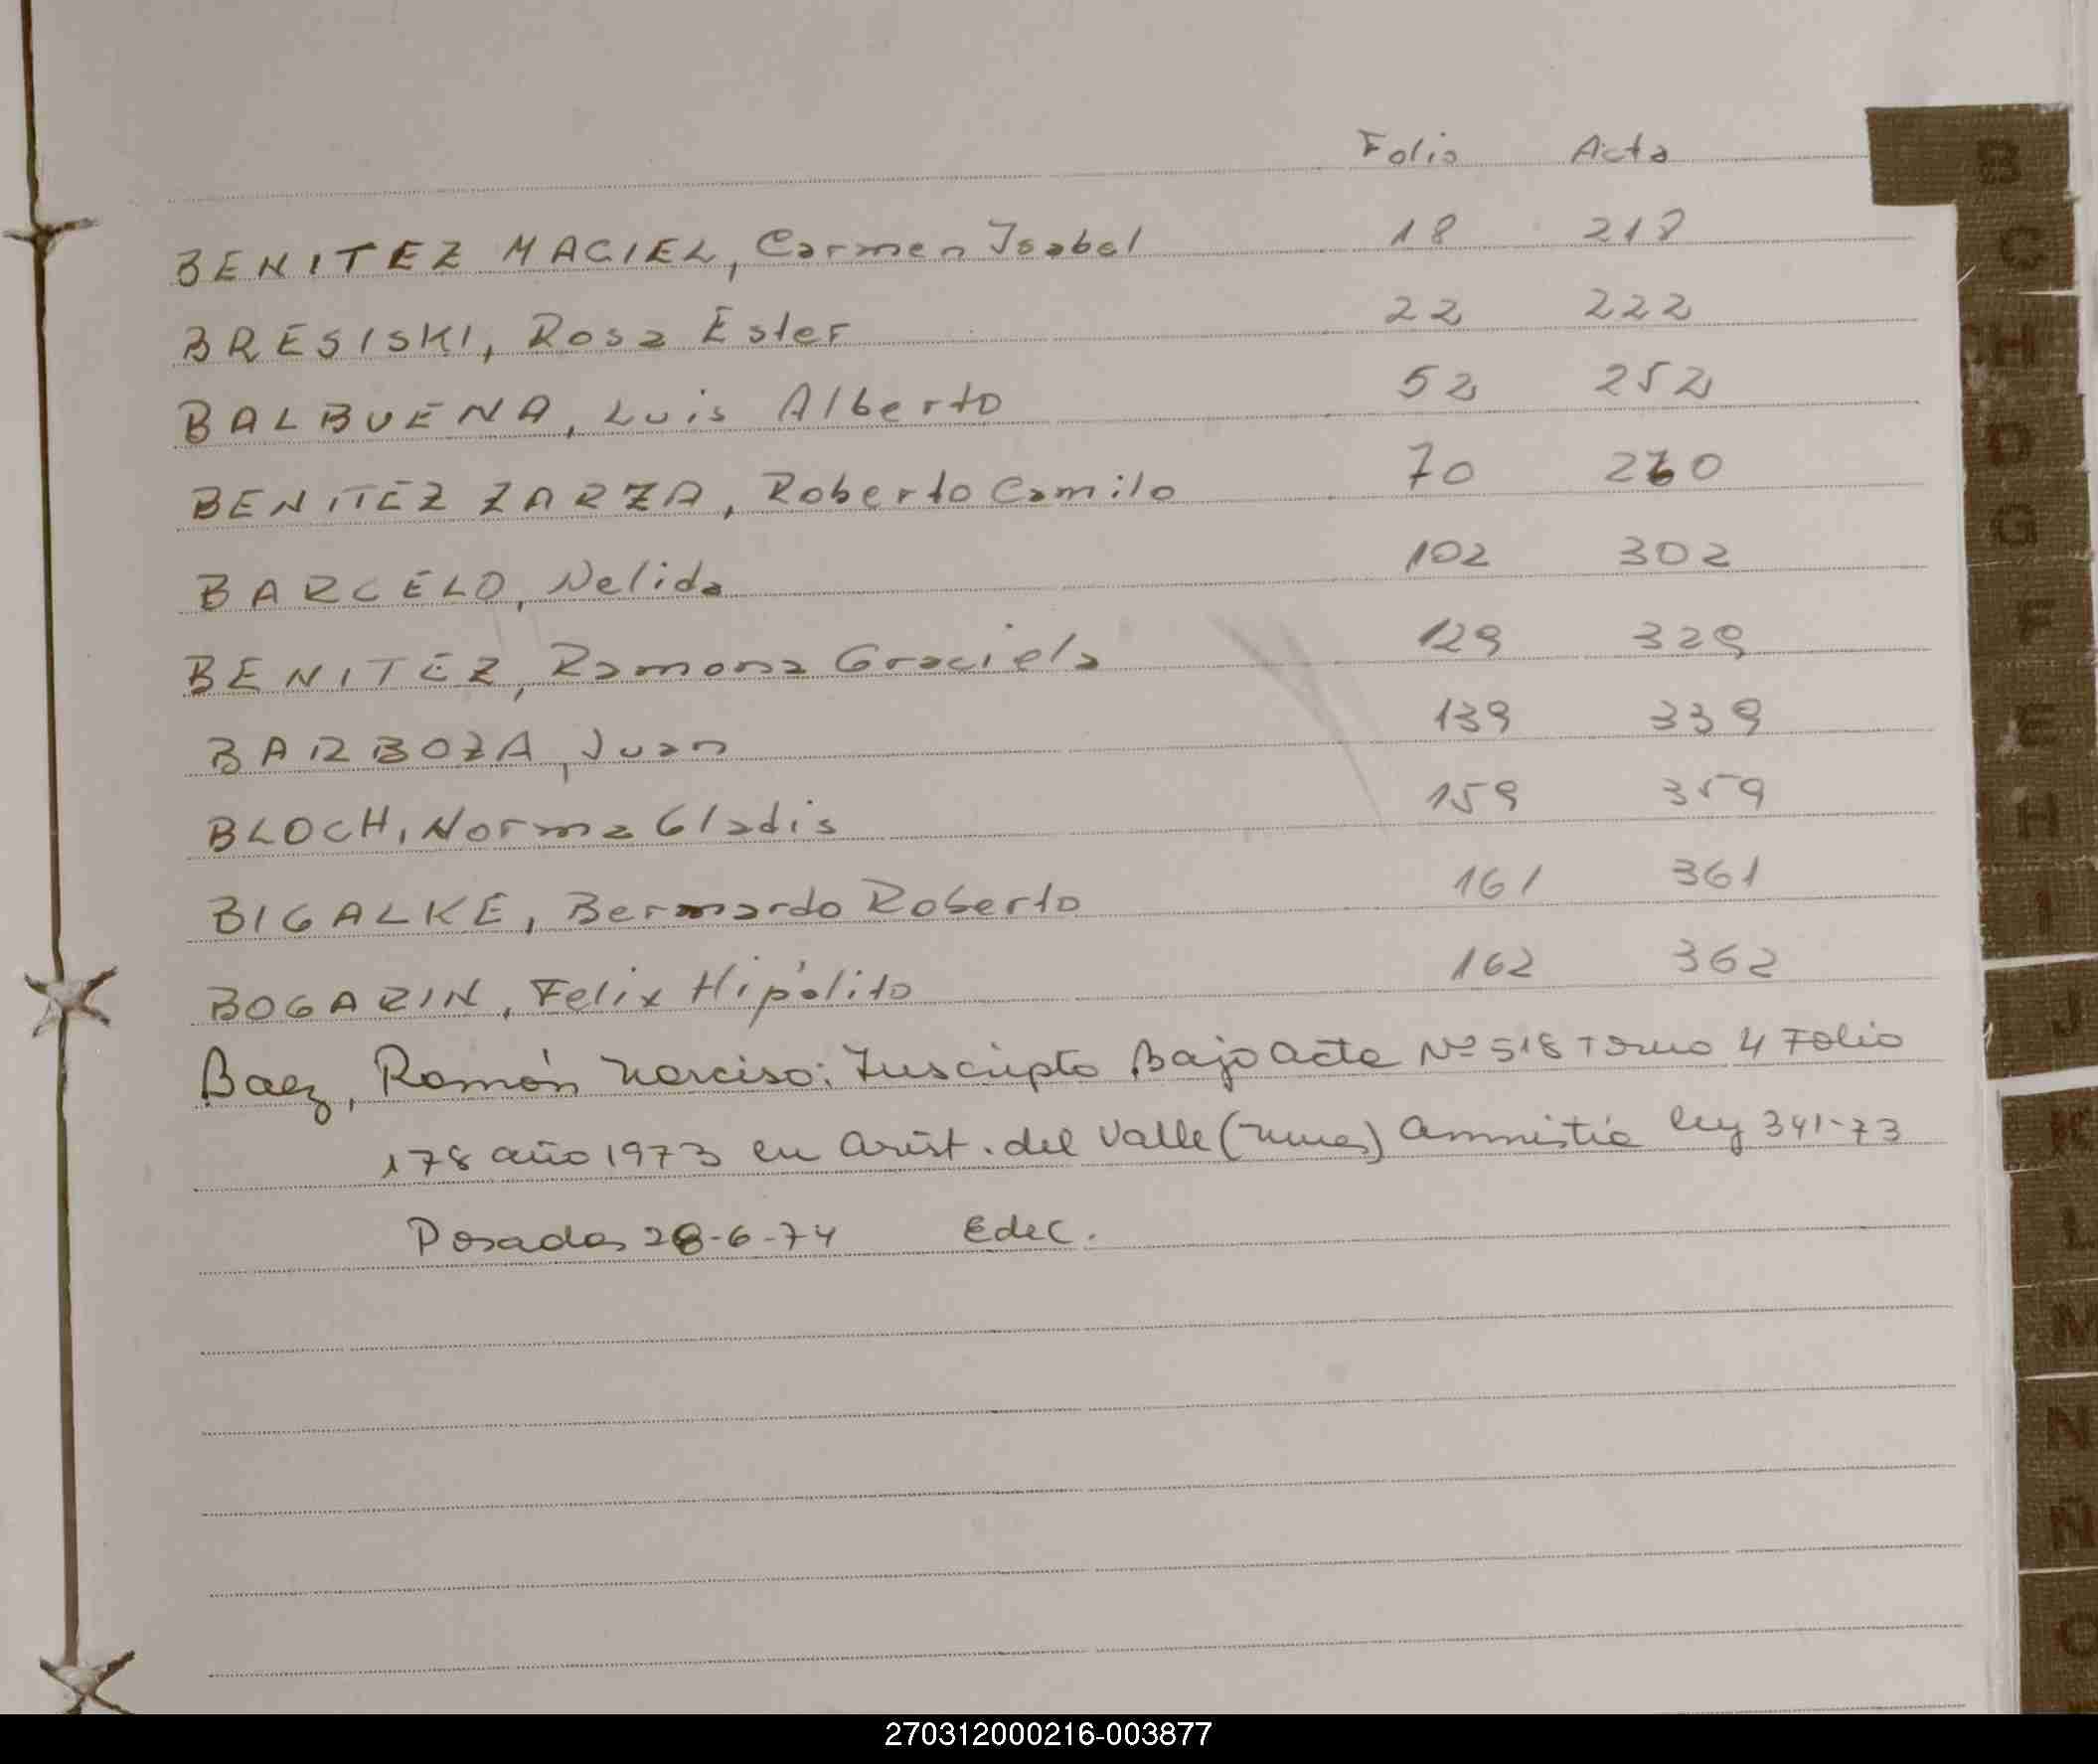 Folio Acta
BENITEZ MACIEL, Carmen Isabel 18 218
BRESISKI, Rosa Ester 22 222
BALBUENA, Luis Alberto 52 252
BENITEZ ZARZA, Roberto Camilo 70 270
BARCELO, Nelida 102 302
BENITEZ, Ramona Graciela 129 329
BARBOZA, Juan 139 339
BLOCH, Norma Gladis 159 359
BIGALKE, Bernardo Roberto 161 361
BOGARIN, Felix Hipólito 162 362
Baez, Ramón Narciso: Inscripto Bajo acta Nº 518 Tomo 4 Folio
178 año 1973 en Arist. del Valle (Mnes) Amnistia ley 341-73
Posadas 28-6-74 Edec.
B
C
CH
D
G
F
E
H
I
J
K
L
M
N
Ñ
O
270312000216-003877